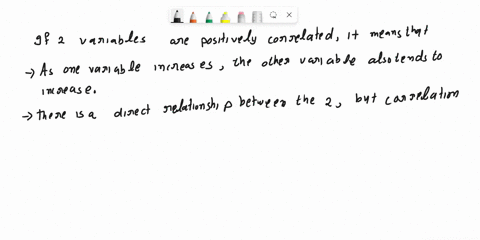 If 2 variables are positively correlated, it means that
→ As one variable increases, the other variable also tends to
increase.
→ there is a direct relationship between the 2, but correlation